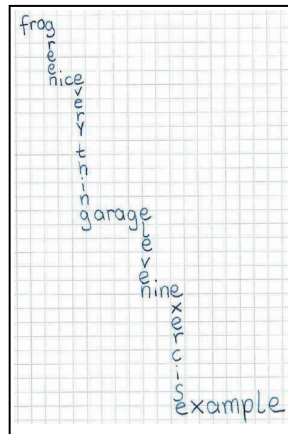 frog
green
nice
everything
garage
eleven
nine
exercise
example